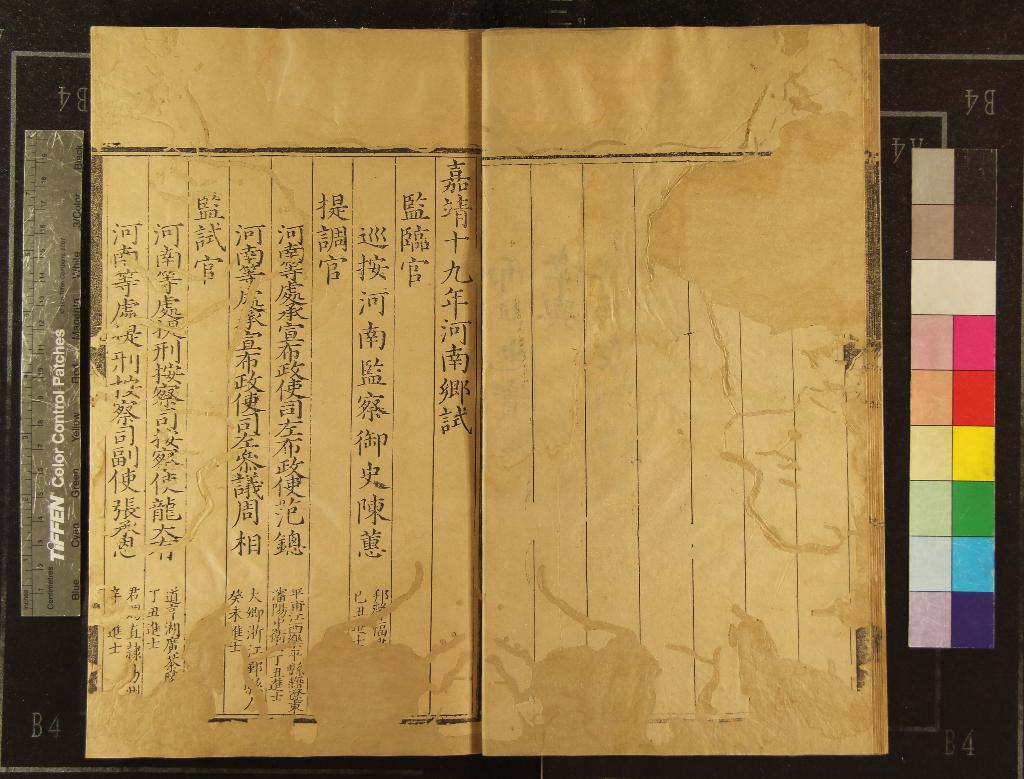 嘉靖十九年河南鄉試
監臨官
巡按河南監察御史陳蕙
提調官
河南等處承宣布政使司左布政使范鏓
平甫江西樂平縣籍遼東
瀋陽中衛丁丑進士
河南等處承宣布政使司左參議周相
大卿浙江鄞
癸未進士
監試官
河南等處提刑按察司按察使龍大有
道亨湖廣茶陵
丁丑進士
河南等處提刑按察司副使張承恩
直隸
進士
TIFFEN Color Control Patches
Centimetres
Inches
Blue
Cyan
Green
Yellow
Red
Magenta
White
3/Color
Black
B4
B4
A4
B4
B4